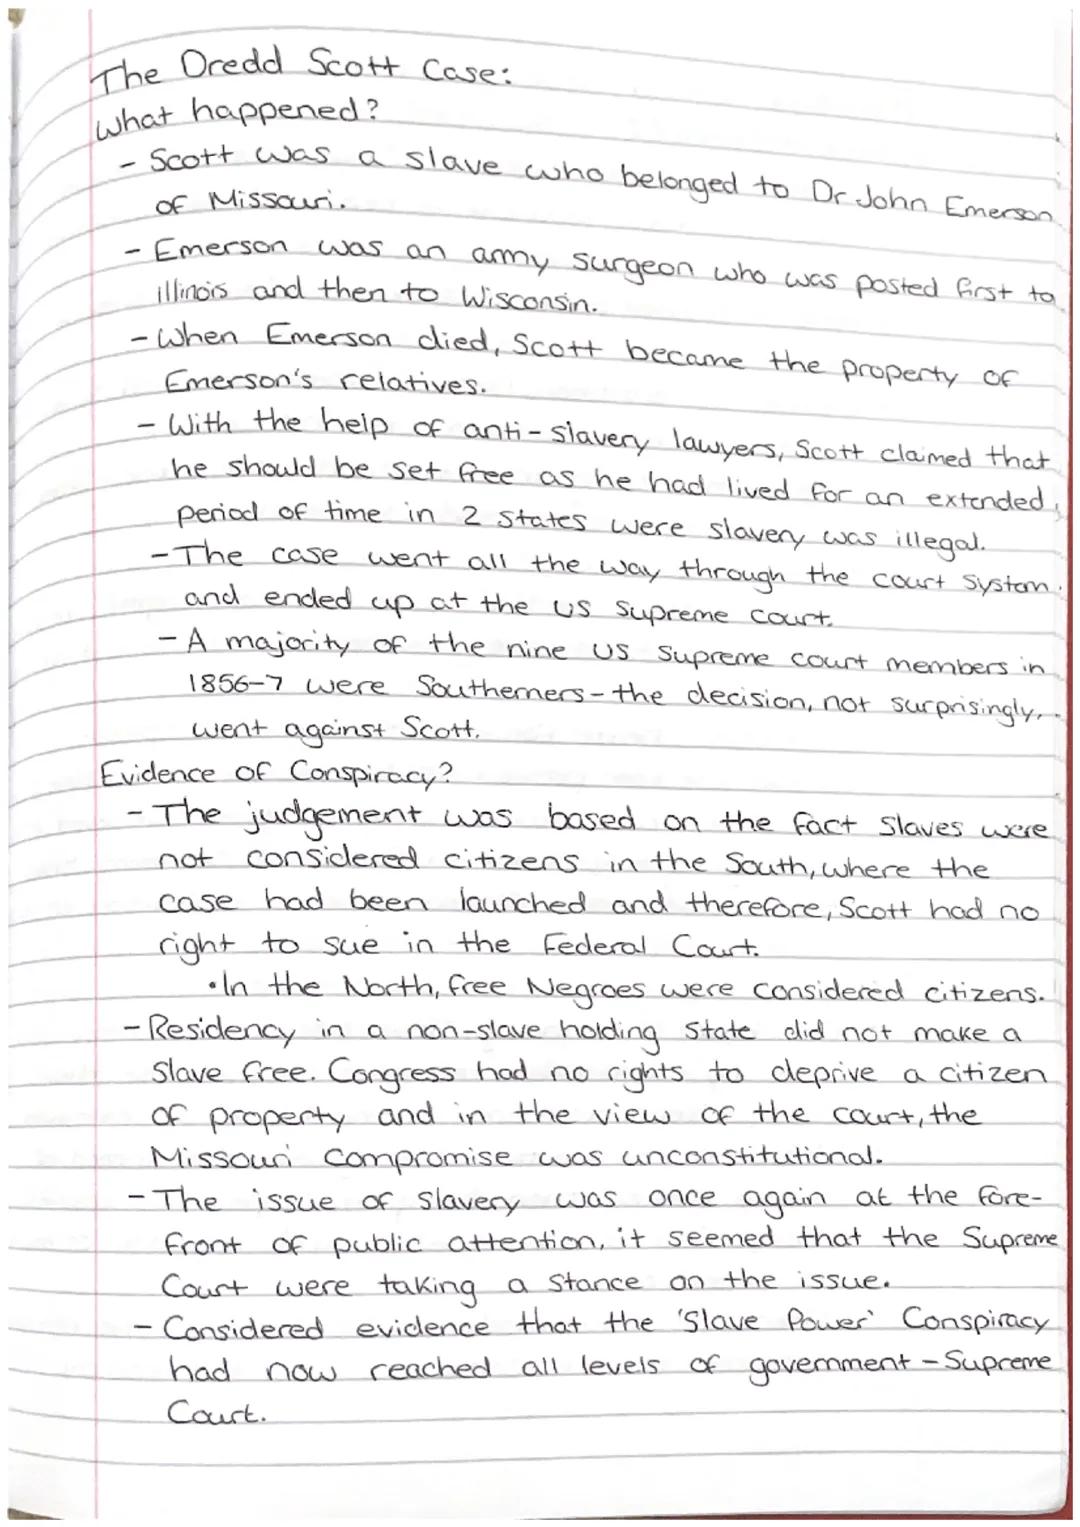 The Dredd Scott Case:
What happened?
- Scott was a slave who belonged to Dr John Emerson
of Missouri.
- Emerson was an army surgeon who was posted first to
illinois and then to Wisconsin.
- When Emerson died, Scott became the property of
Emerson's relatives.
- With the help of anti-slavery lawyers, Scott claimed that
he should be set free as he had lived for an extended
period of time in 2 states were slavery was illegal.
- The case went all the way through the court system
and ended up at the US Supreme Court.
- A majority of the nine US Supreme court members in
1856-7 were Southerners - the decision, not surprisingly,
went against Scott.
Evidence of Conspiracy?
- The judgement was based on the fact slaves were
not considered citizens in the South, where the
case had been launched and therefore, Scott had no
right to sue in the Federal Court.
•In the North, free Negroes were considered citizens.
- Residency in a non-slave holding state did not make a
slave free. Congress had no rights to deprive a citizen
of property and in the view of the court, the
Missouri Compromise was unconstitutional.
- The issue of slavery was once again at the fore-
front of public attention, it seemed that the Supreme
Court were taking a stance on the issue.
- Considered evidence that the 'Slave Power' Conspiracy
had now reached all levels of government - Supreme
Court.